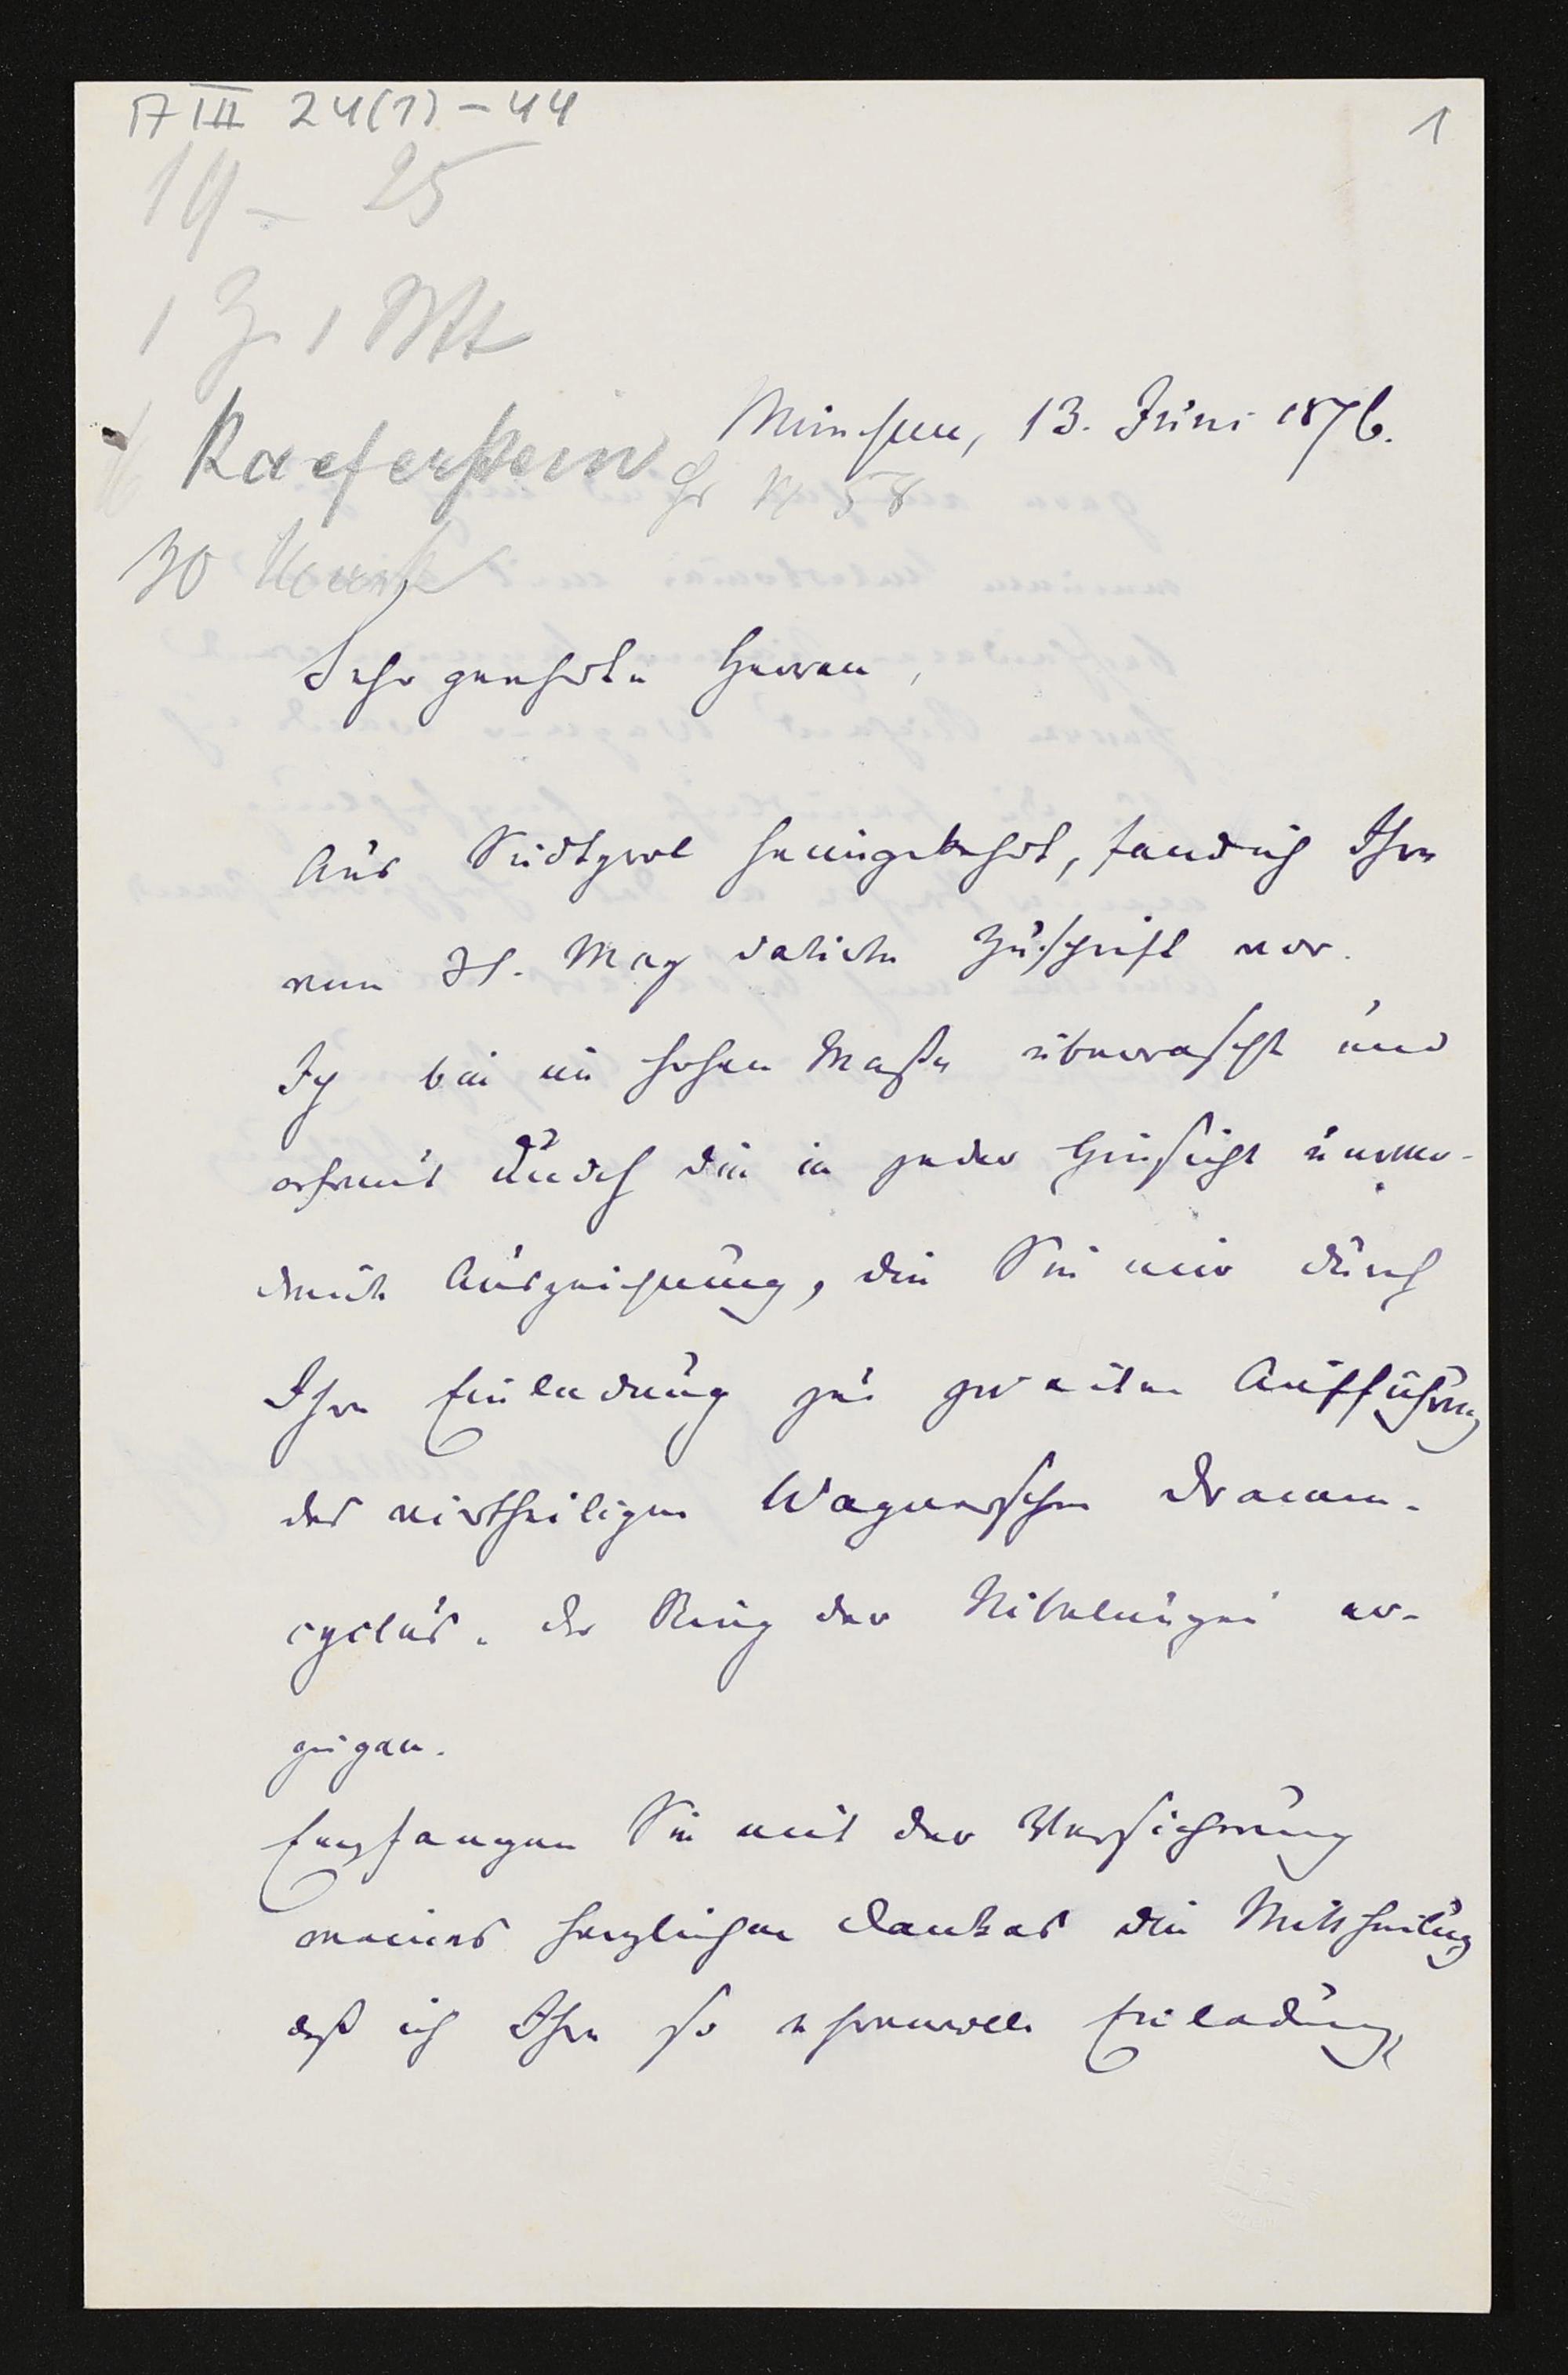 A III 24(1)-44
1
19 - 25
München, 13. Juni 1876.
Kaeferstein
30
Sehr geehrte Herren,
Aus Südtyrol heimgekehrt, fand ich Ihre
vom 31. May datirte Zuschrift vor.
Ich bin im hohen Maße überrascht und
erfreut durch die in jeder Hinsicht unver-
diente Auszeichnung, die Sie mir durch
Ihre Einladung zur zweiten Aufführung
des viertheiligen Wagnerschen Dramen-
cyclus „der Ring der Nibelungen" er-
zeigen.
Empfangen Sie mit der Versicherung
meines herzlichen Dankes die Mittheilung
daß ich Ihre so ehrenvolle Einladung,